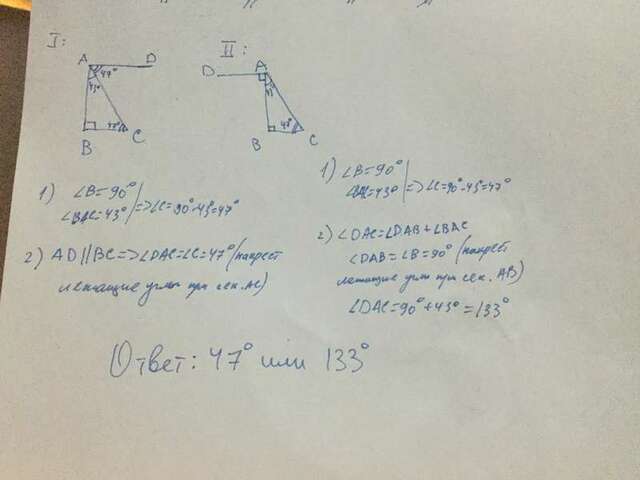 I:
A D
47°
43°
47°
B C
II:
D A
43°
47°
B C
1) ∠B=90°
∠BAC=43° | => ∠C=90°-43°=47°
2) AD||BC => ∠DAC=∠C=47° (накрест
лежащие углы при сек. AC)
1) ∠B=90°
∠BAC=43° | => ∠C=90°-43°=47°
2) ∠DAC=∠DAB+∠BAC
∠DAB=∠B=90° (накрест
лежащие углы при сек. AB)
∠DAC=90°+43°=133°
Ответ: 47° или 133°